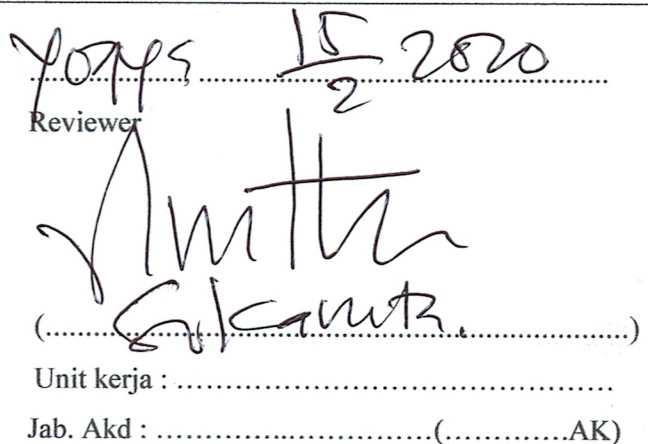 Yogya 15/2 2020
Reviewer
(........................................................)
Unit kerja : ................................................
Jab. Akd : ..............................(............AK)